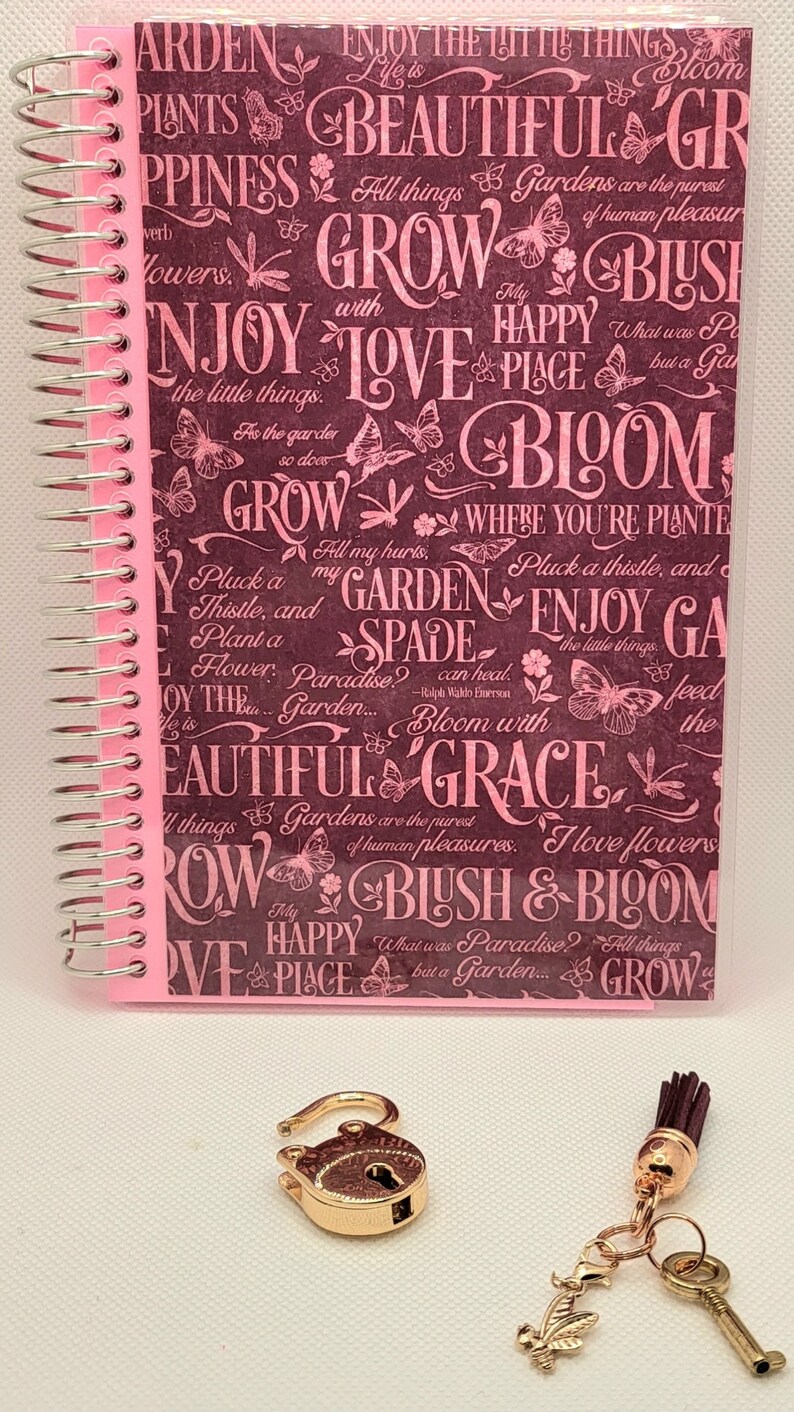 ARDEN
ENJOY THE LITTLE THINGS
Life is
Bloom
PLANTS
BEAUTIFUL
GR
PPINESS
All things
Gardens are the purest
of human pleasur
verb
GROW
lowers.
with
My
BLUSH
NJOY
LOVE
HAPPY
PLACE
What was Pa
but a Gar
the little things.
As the garden
so does
BLOOM
GROW
WHERE YOU'RE PLANTE
All my hurts,
my GARDEN
SPADE
can heal.
—Ralph Waldo Emerson
Pluck a thistle, and
Y
Pluck a
Thistle, and
Plant a
Flower.
ENJOY
the little things.
GA
Paradise?
Garden...
feed
the
OY THE
life is
Bloom with
EAUTIFUL
GRACE
ll things
Gardens are the purest
of human pleasures.
I love flowers
ROW
BLUSH & BLOOM
My
HAPPY
PLACE
What was Paradise?
but a Garden...
All things
GROW
OVE